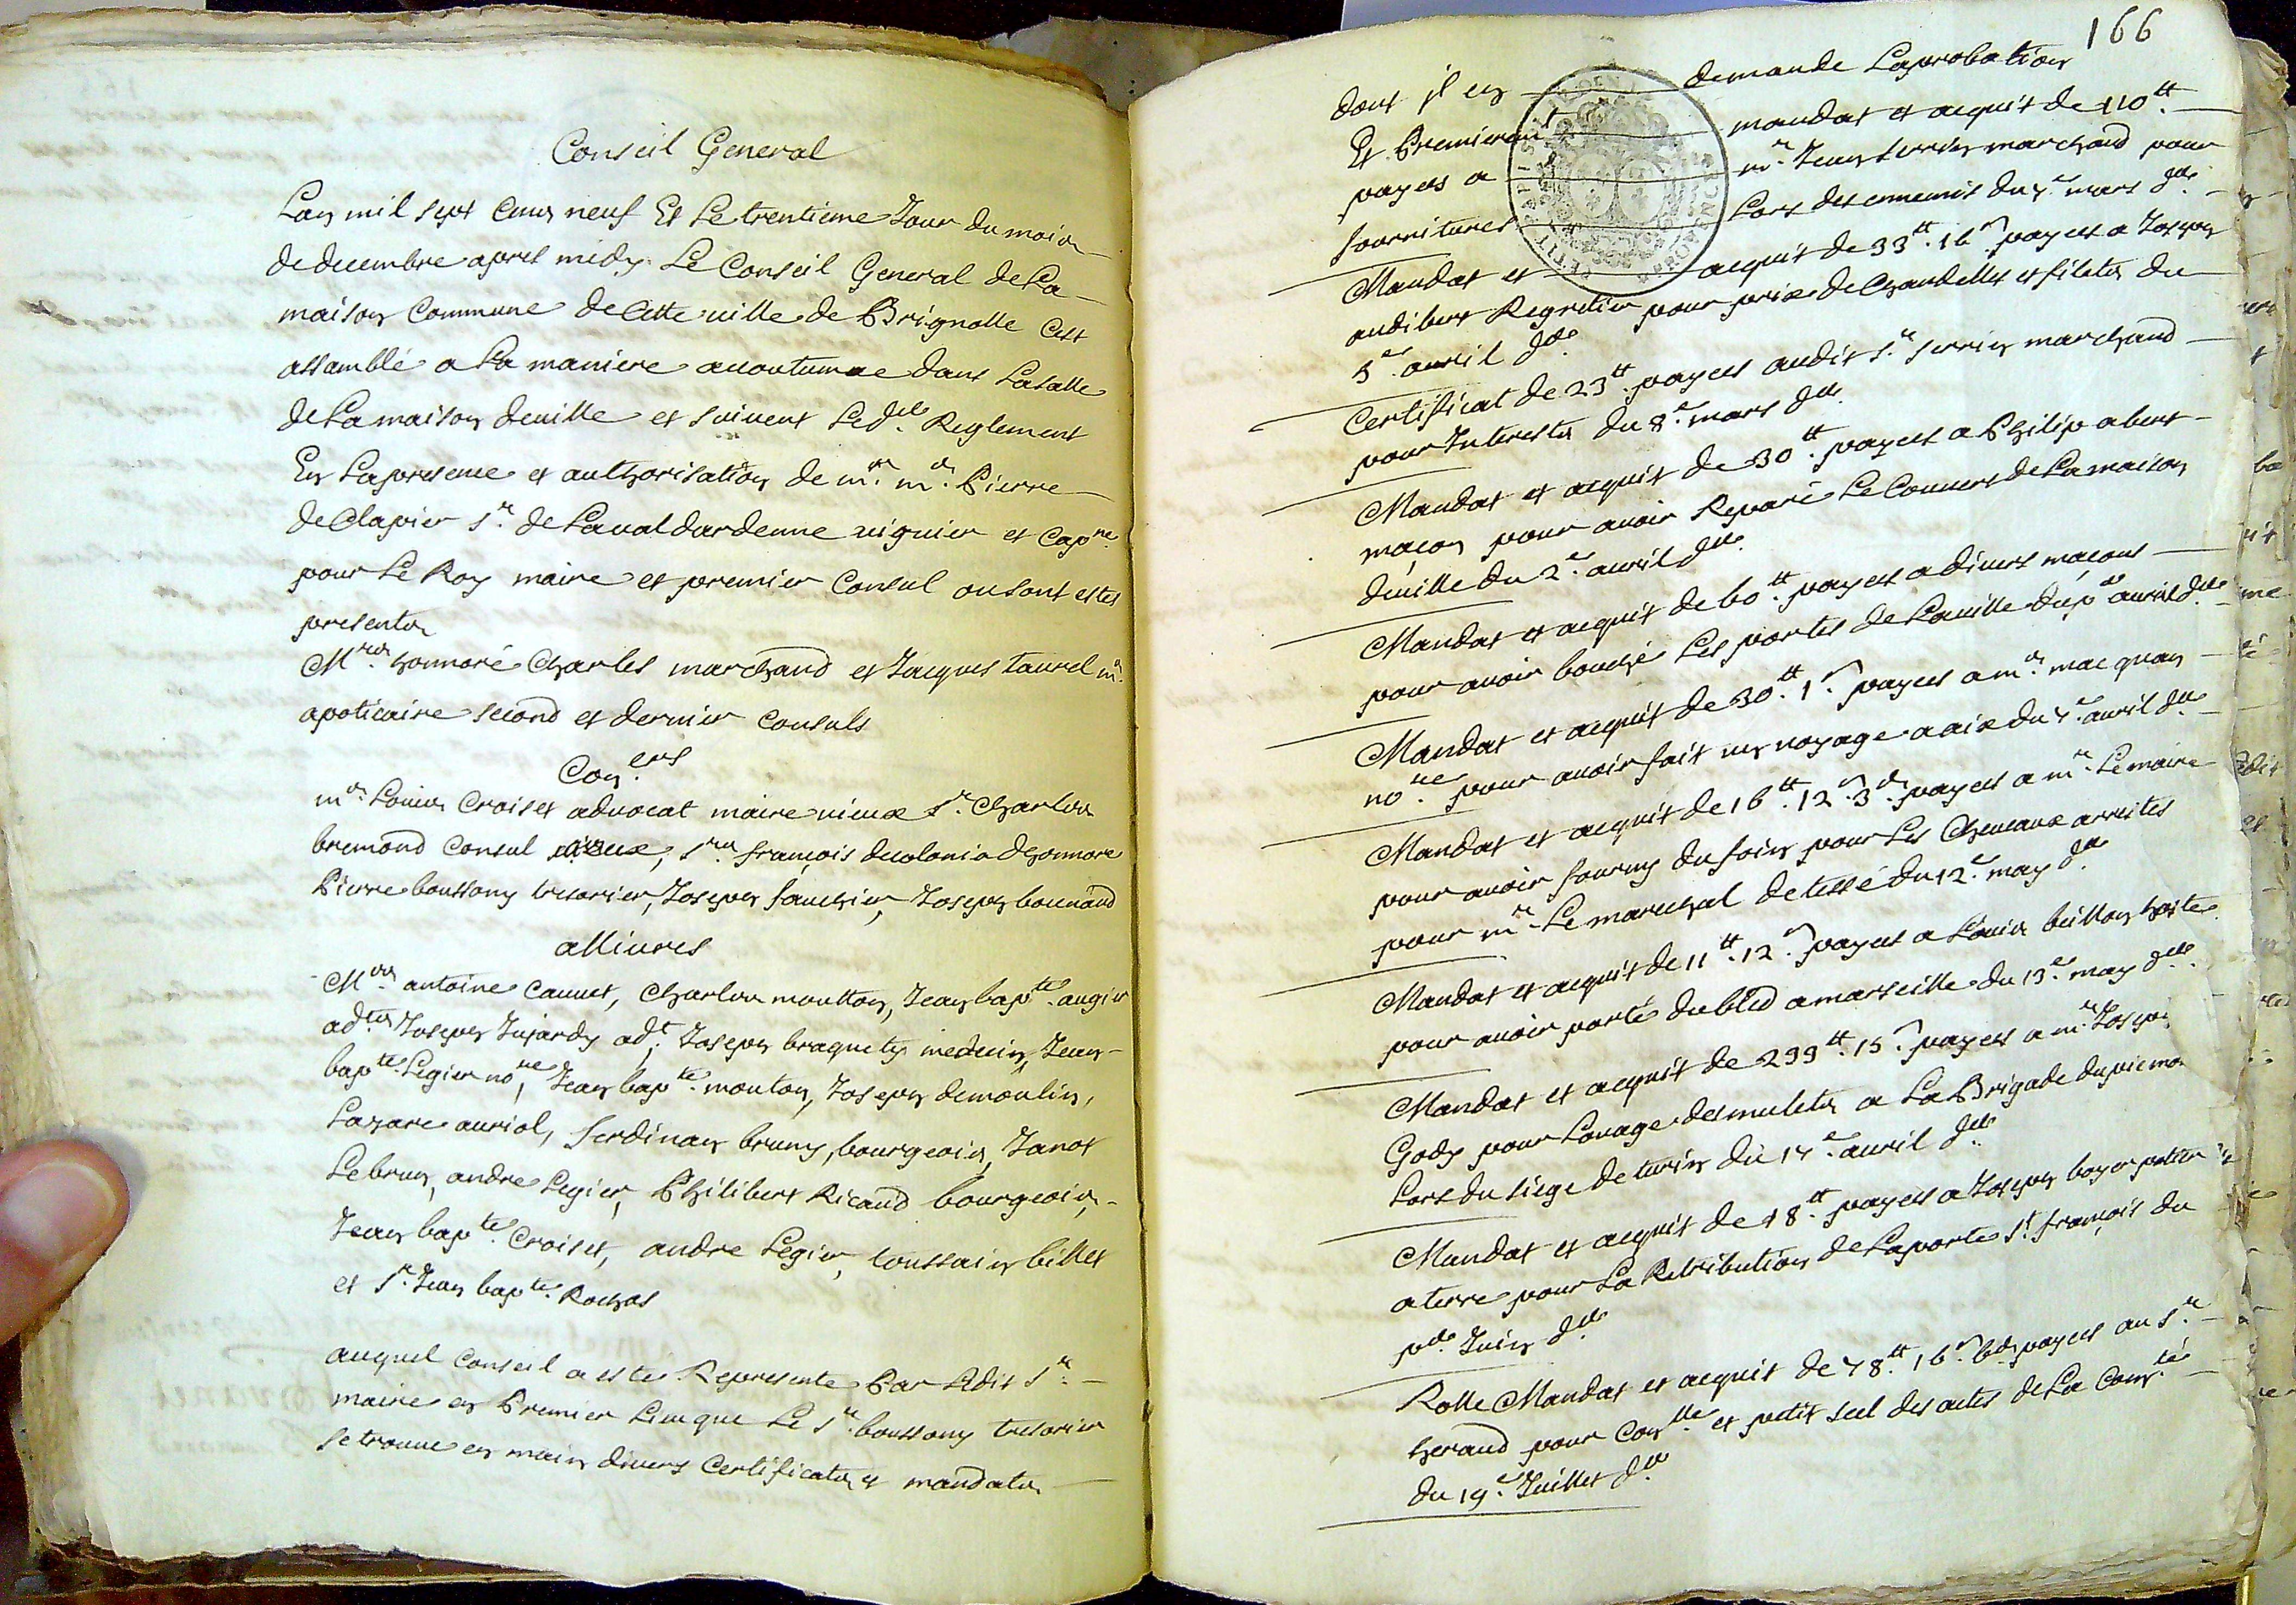 Conseil General
Lan mil sept cens neuf Et Le trentieme Jour du mois
de decembre apres midy Le Conseil General de La
maison Commune de Cette ville de Brignolle Cest
assamblé a La maniere acoutumee dans La salle
de La maison deuille et suivent Le d.t Reglement
En La presence et authorisation de m.re m.e Pierre
de Clapier s.r de Laval dardenne viguier et Cap.ne
pour Le Roy maire et premier Consul ou sont estes
presents
M.rs honnoré Charles marchand et Jacques taurel m.e
apoticaire second et dernier Consuls
Con.ers
m.e Louis Croiset advocat maire vieux s.r Charles
bremond Consul vieux, s.rs françois decolonia dhonnore
Pierre boussony tresorier, Joseph fauchier, Joseph
allivres
M.es antoine Cannet, Charles moutton, Jean bap.te augier
ad.ts Joseph Jujardy ad.t Joseph braquety medecin, Jean
bap.te Legier no.re, Jean bap.te mouton, Joseph demoulin,
Lazare auriol, ferdinan bruny, bourgeois, Janot
Lebrun, andre Legier, Philibert Ricaud bourgeois,
Jean bap.te Croiset, andre Legier, toussain billet
et s.r Jean bap.te Rochas
auquel Conseil a estes Represente Par Ledit s.r
maire en Premier Lieu que Le s.r boussony tresorier
se trouve en main divers Certificats et mandats
166
dont il en demande Laprobation
Et Premierem.t mandat et acquit de 110 tt.
payes a m.r Jean serrin marchand pour
fournitures Lors des ennemis du 7.e mars d.t
Mandat et acquit de 33 tt. 16 s payes a Joseph
audibert Regretier pour prix de Chandelles et filets du
5.e avril d.t
Certificat de 23 tt. payes audit s.r serrin marchand
pour Interests du 8.e mars d.t
Mandat et acquit de 30 tt. payes a Philip abert
maçon pour avoir Reparé Le Couvert de La maison
deuille du 2.e avril d.t
Mandat et acquit de 60 tt. payes a divers maçons
pour avoir bouché Les portes de La ville du p.er avril d.t
Mandat et acquit de 30 tt. 1 s payes a m.e macquan
no.re pour avoir fait un voyage a aix du 7.e avril d.t
Mandat et acquit de 16 tt. 12 s. 3 d. payes a m.r Le maire
pour avoir fourny du foin pour Les Chevaux arrestes
pour m.r Le marechal de tessé du 12.e may d.t
Mandat et acquit de 11 tt. 12 s payes a Louis buillon hoste
pour avoir porté du bled a marseille du 13.e may d.t
Mandat et acquit de 299 tt. 15 s payes a m.r Joseph
Gody pour Louage des mulets a La Brigade du piemo
Lors du siege de turin du 14.e avril d.t
Mandat et acquit de 18 tt. payes a Joseph boyer potier
a terre pour La Retribution de La porte s.t françois du
p.er Juin d.t
Rolle Mandat et acquit de 78 tt. 16 s 6 d payes au s.r
heraud pour Con.lle et petit seel des actes de La Com.té
du 19.e Juillet d.t